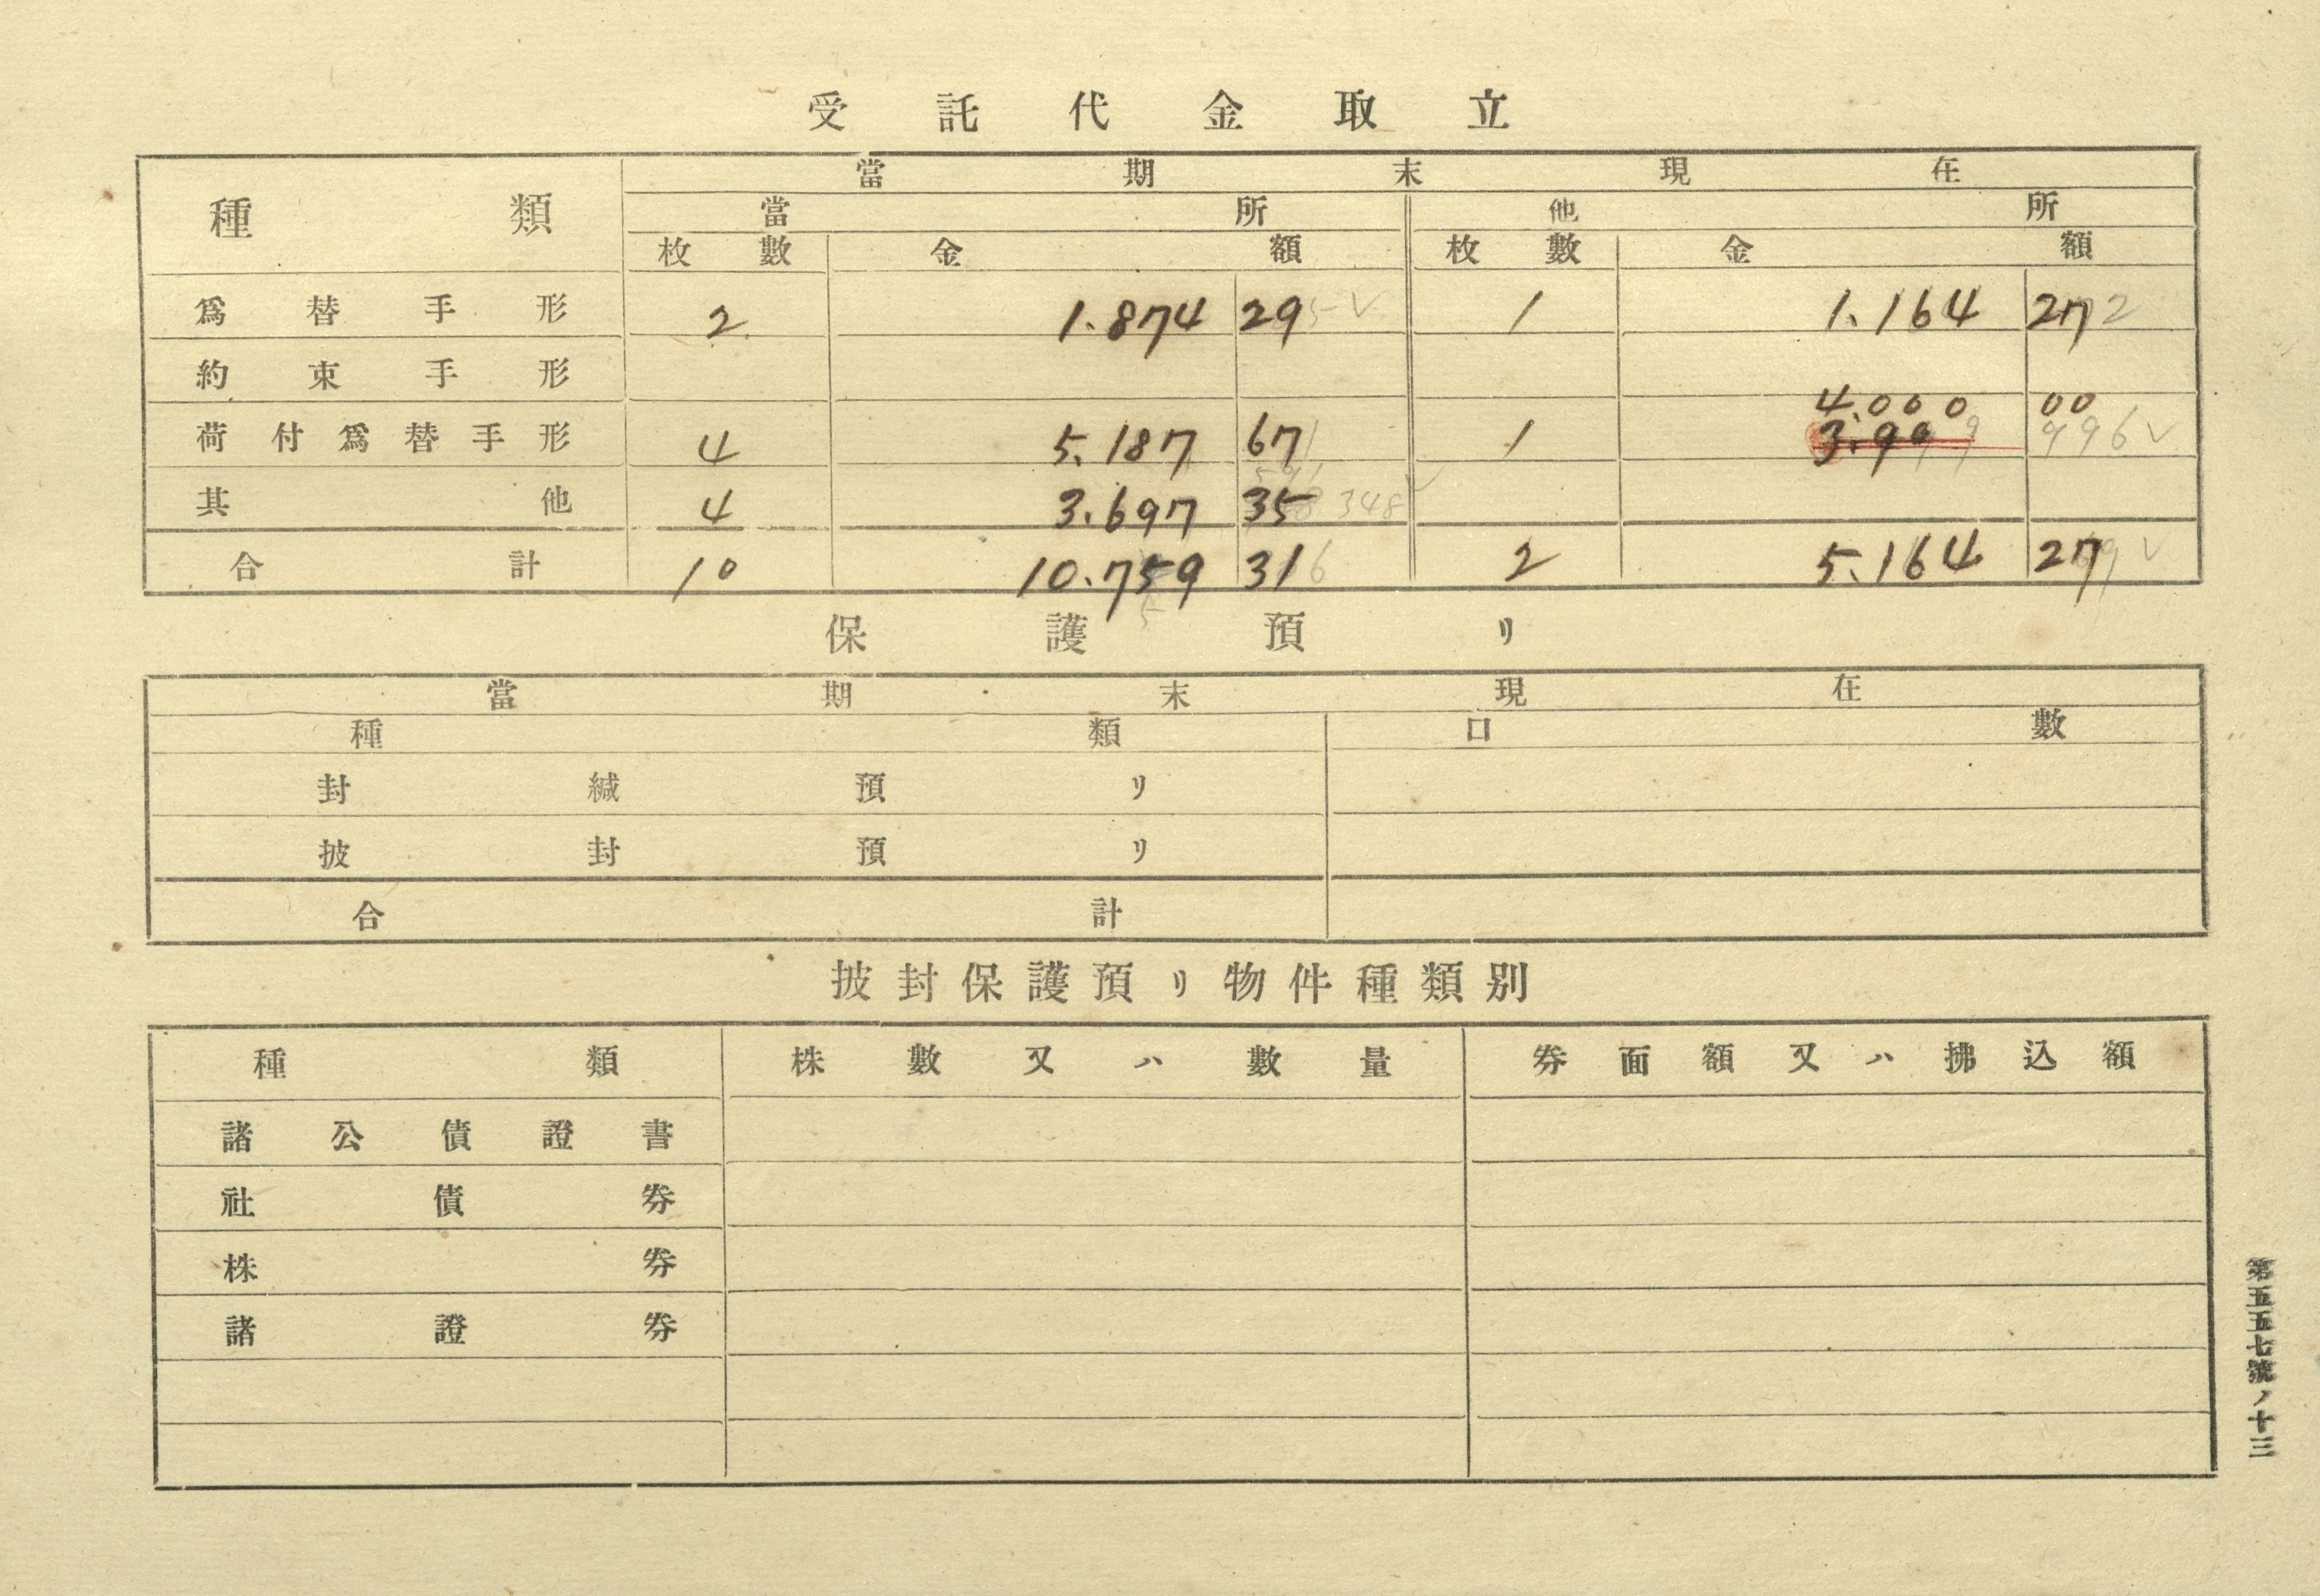 受託代金取立
種類 當期末現在
當所 他所
枚數 金額 枚數 金額
爲替手形 2 1.874 29 1 1.164 27
約束手形
4.000 00
荷付爲替手形 4 5.187 67 1 3.99
其他 4 3.697 35
合計 10 10.759 31 2 5.164 27
保護預リ
當期末現在
種類 口數
封緘預リ
披封預リ
合計
披封保護預リ物件種類別
種類 株數又ハ數量 券面額又ハ拂込額
諸公債證書
社債券
株券
諸證券
第五五七號ノ十三